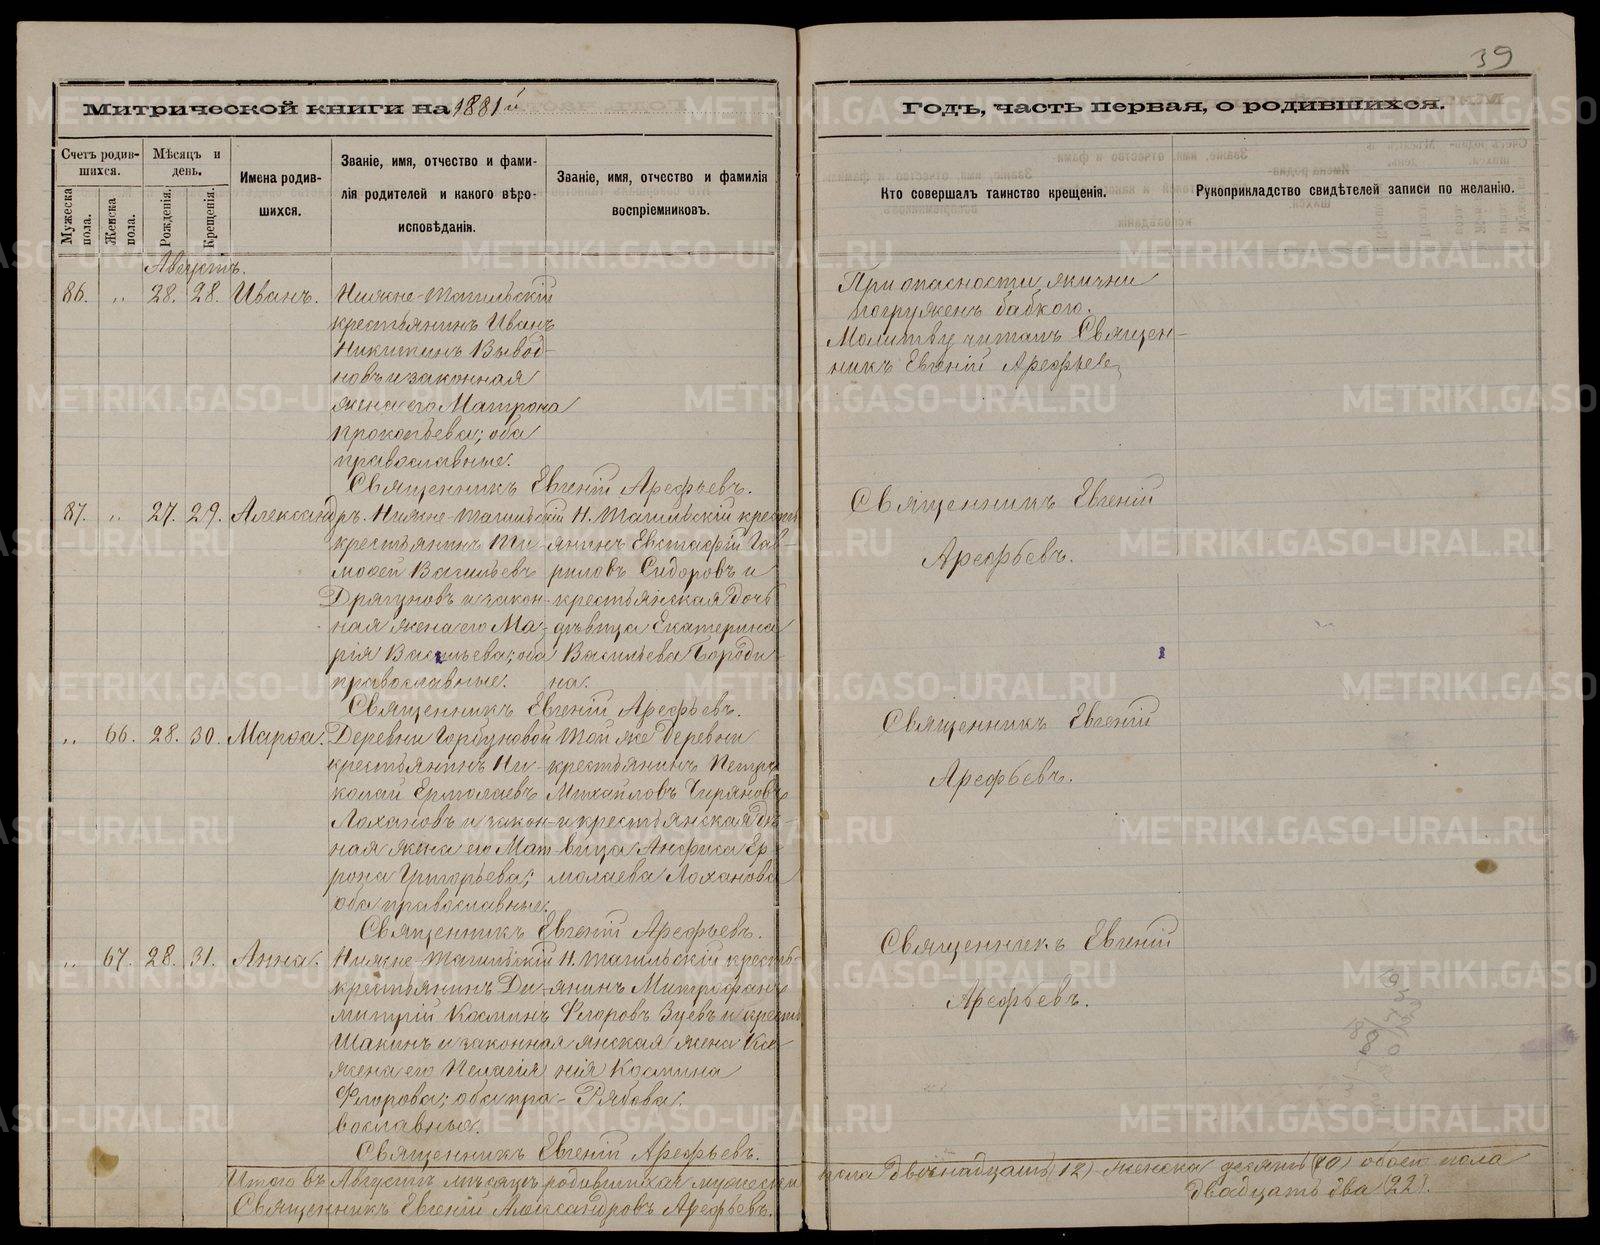 39
Митрической книги на 1881й
Годъ, часть первая, о родившихся.
Счетъ родив-
шихся.
Мужеска пола.
Женска пола.
Мѣсяцъ и
день.
Рожденія.
Крещенія.
Имена родив-
шихся.
Званіе, имя, отчество и фами-
лія родителей и какого вѣро-
исповѣданія.
Званіе, имя, отчество и фамилія
воспріемниковъ.
Кто совершалъ таинство крещенія.
Рукоприкладство свидѣтелей записи по желанію.
Августъ.
86. „ 28. 28. Иванъ.
Нижне-Тагильскій
крестьянинъ Иванъ
Никитинъ Вывод-
новъ и законная
жена его Матрона
Прокопьева; оба
православные.
При опасности жизни
погруженъ бабкою.
Молитву читалъ Священ-
никъ Евгеній Арефьевъ
Священникъ Евгеній Арефьевъ.
87. „ 27. 29. Александръ.
Нижне-Тагильскій
крестьянинъ Ти-
мофей Васильевъ
Драгуновъ и закон-
ная жена его Ма-
рія Васильева; оба
православные.
Н. Тагильскій кресть
янинъ Евстафій Гав-
риловъ Сидоровъ и
крестьянская дочь
дѣвица Екатерина
Васильева Бороди-
на.
Священникъ Евгеній
Арефьевъ.
Священникъ Евгеній Арефьевъ.
„ 66. 28. 30. Марфа.
Деревни Горбуновой
крестьянинъ Ни-
колай Ермолаевъ
Лохановъ и закон-
ная жена его Мат-
рона Григорьева;
оба православные.
Той же деревни
крестьянинъ Петръ
Михайловъ
и крестьянская дѣ-
вица Анфиса Ер-
молаева Лоханова
Священникъ Евгеній
Арефьевъ.
Священникъ Евгеній Арефьевъ.
„ 67. 28. 31. Анна.
Нижне-Тагильскій
крестьянинъ Ди-
митрій Косминъ
Шакинъ и законная
жена его Пелагія
Флорова; оба пра-
вославные.
Н. Тагильскій кресть-
янинъ Митрофанъ
Флоровъ Зуевъ и кресть
янская жена Ксе-
нія Космина
Рябова.
Священникъ Евгеній
Арефьевъ.
Священникъ Евгеній Арефьевъ.
Итого въ Августѣ мѣсяцѣ родившихся мужески
пола двѣнадцать (12) женска десять (10) обоего пола
двадцать два (22).
Священникъ Евгеній Александровъ Арефьевъ.
METRIKI.GASO-URAL.RU